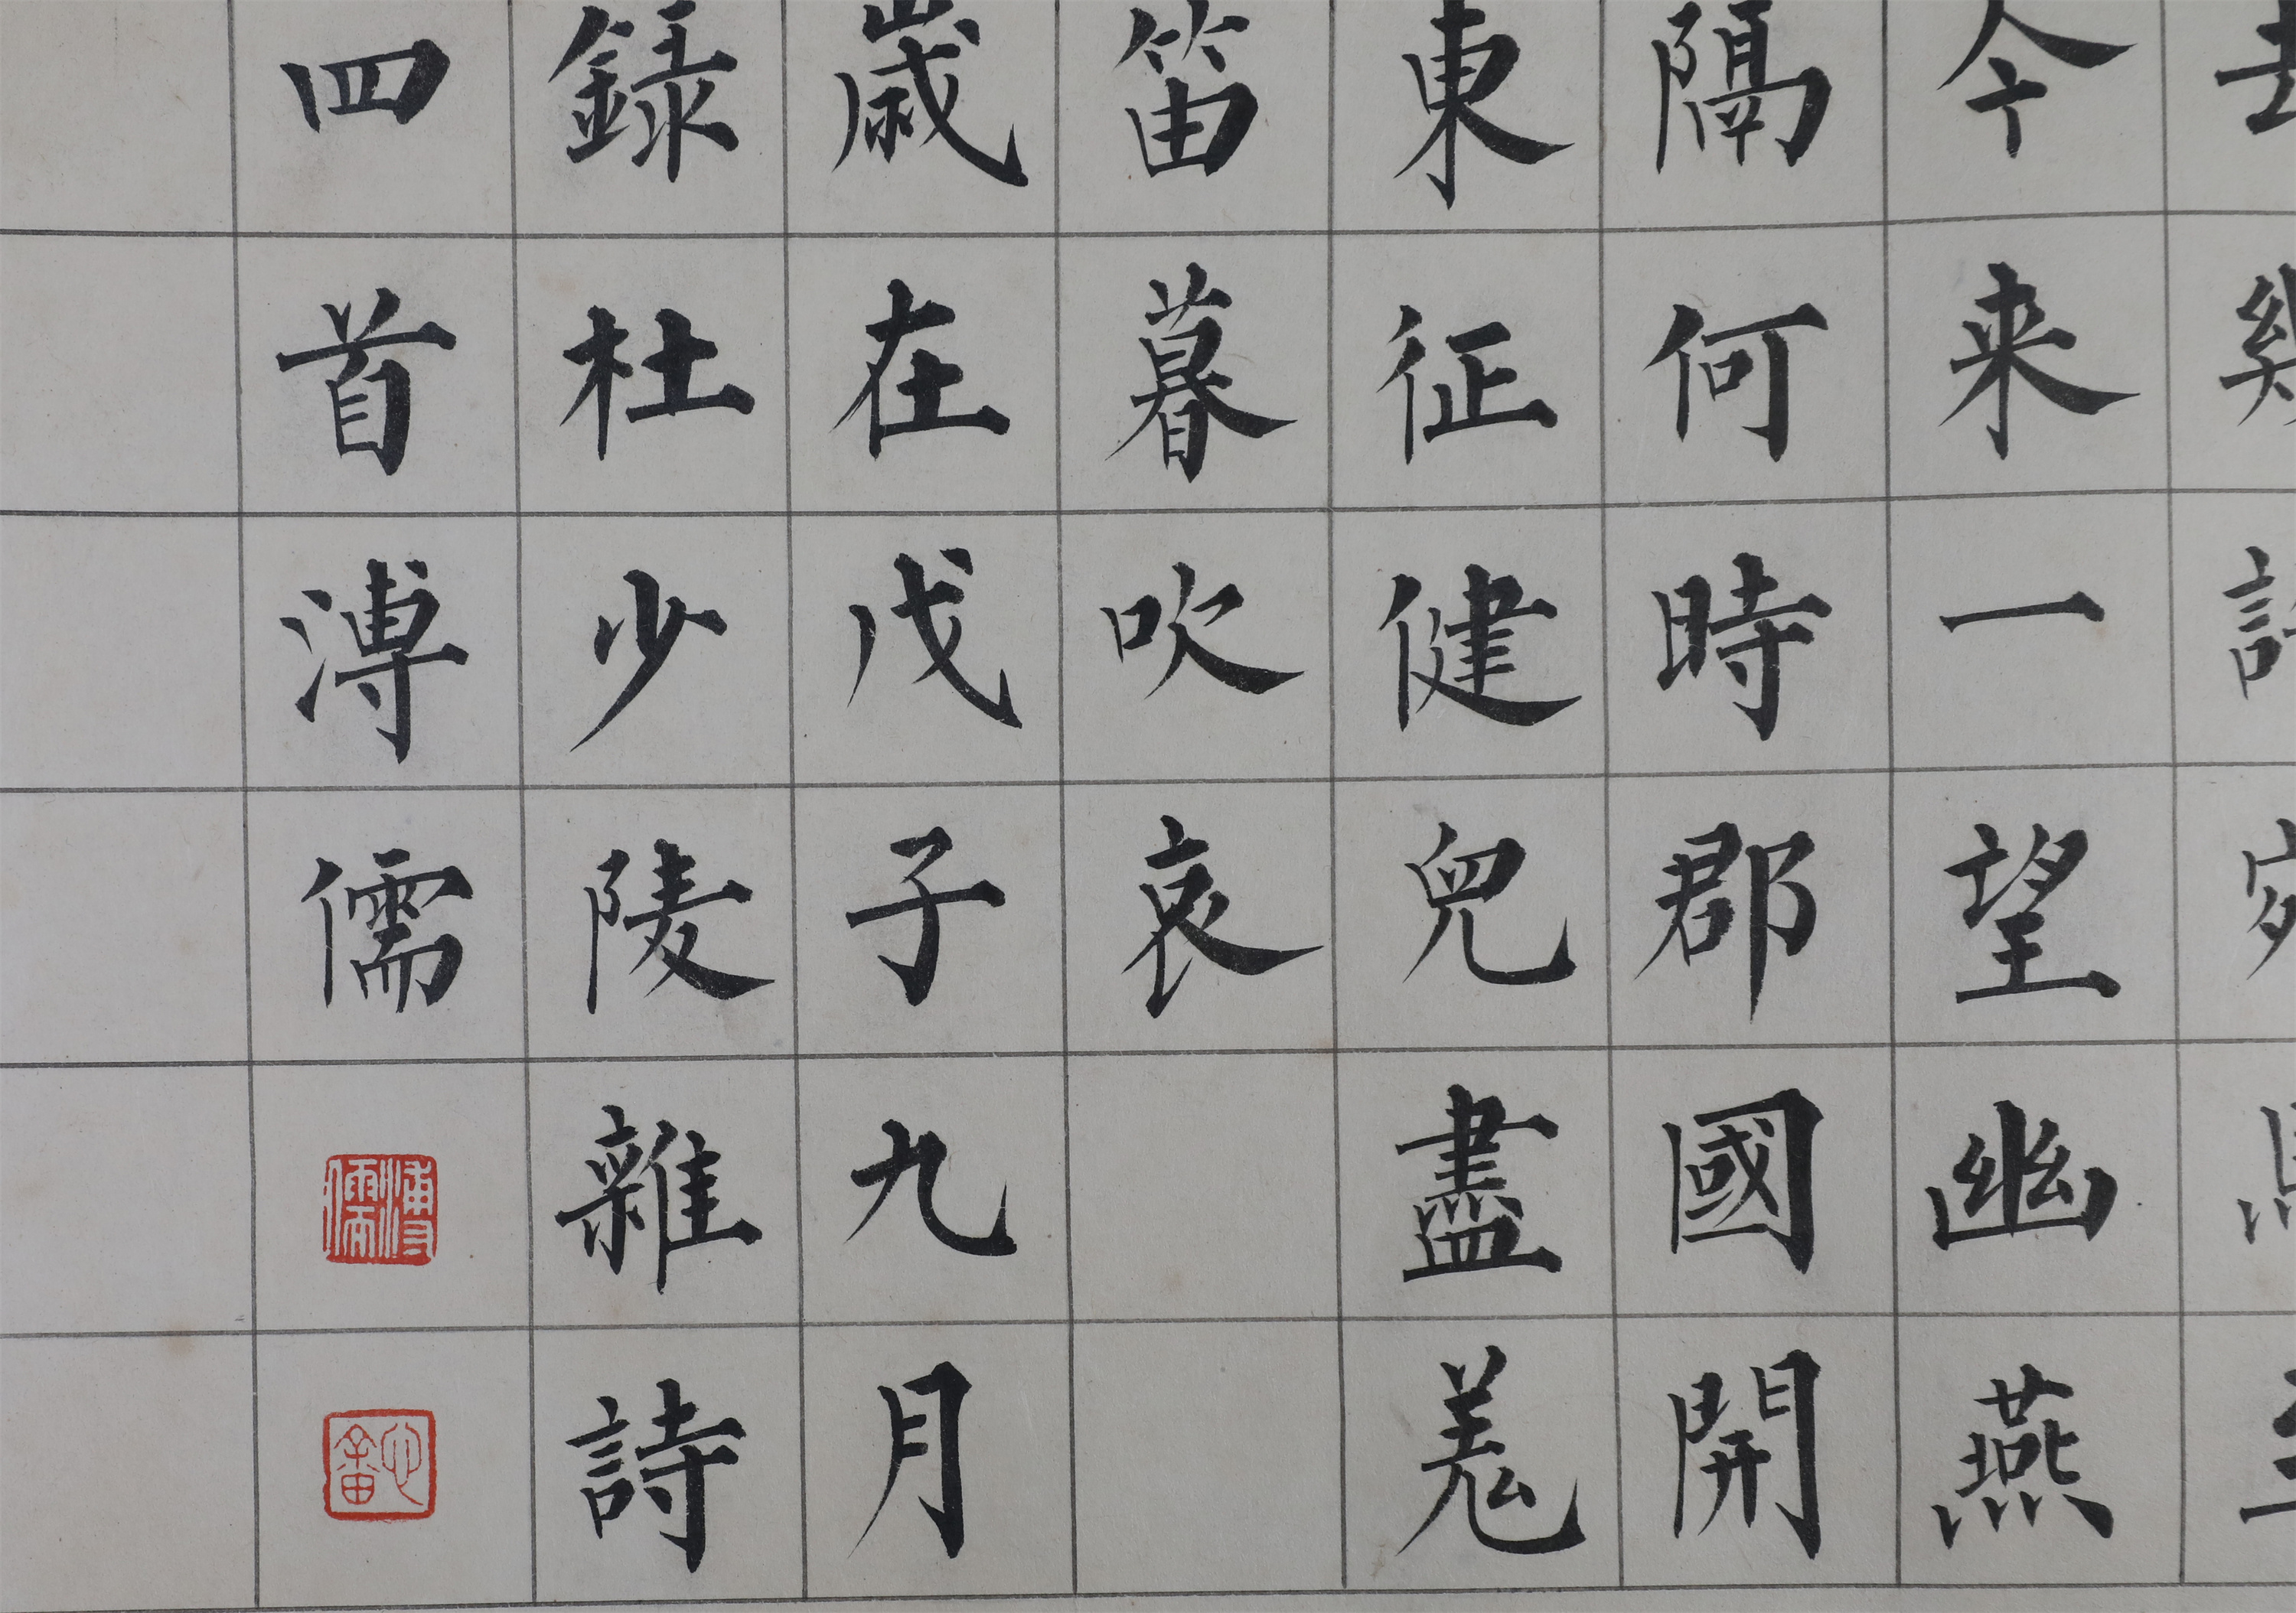 今来一望幽燕
隔何時郡國開
東征健兒盡羌
笛暮吹哀
歲在戊子九月
録杜少陵雜詩
四首溥儒
溥儒
心畬